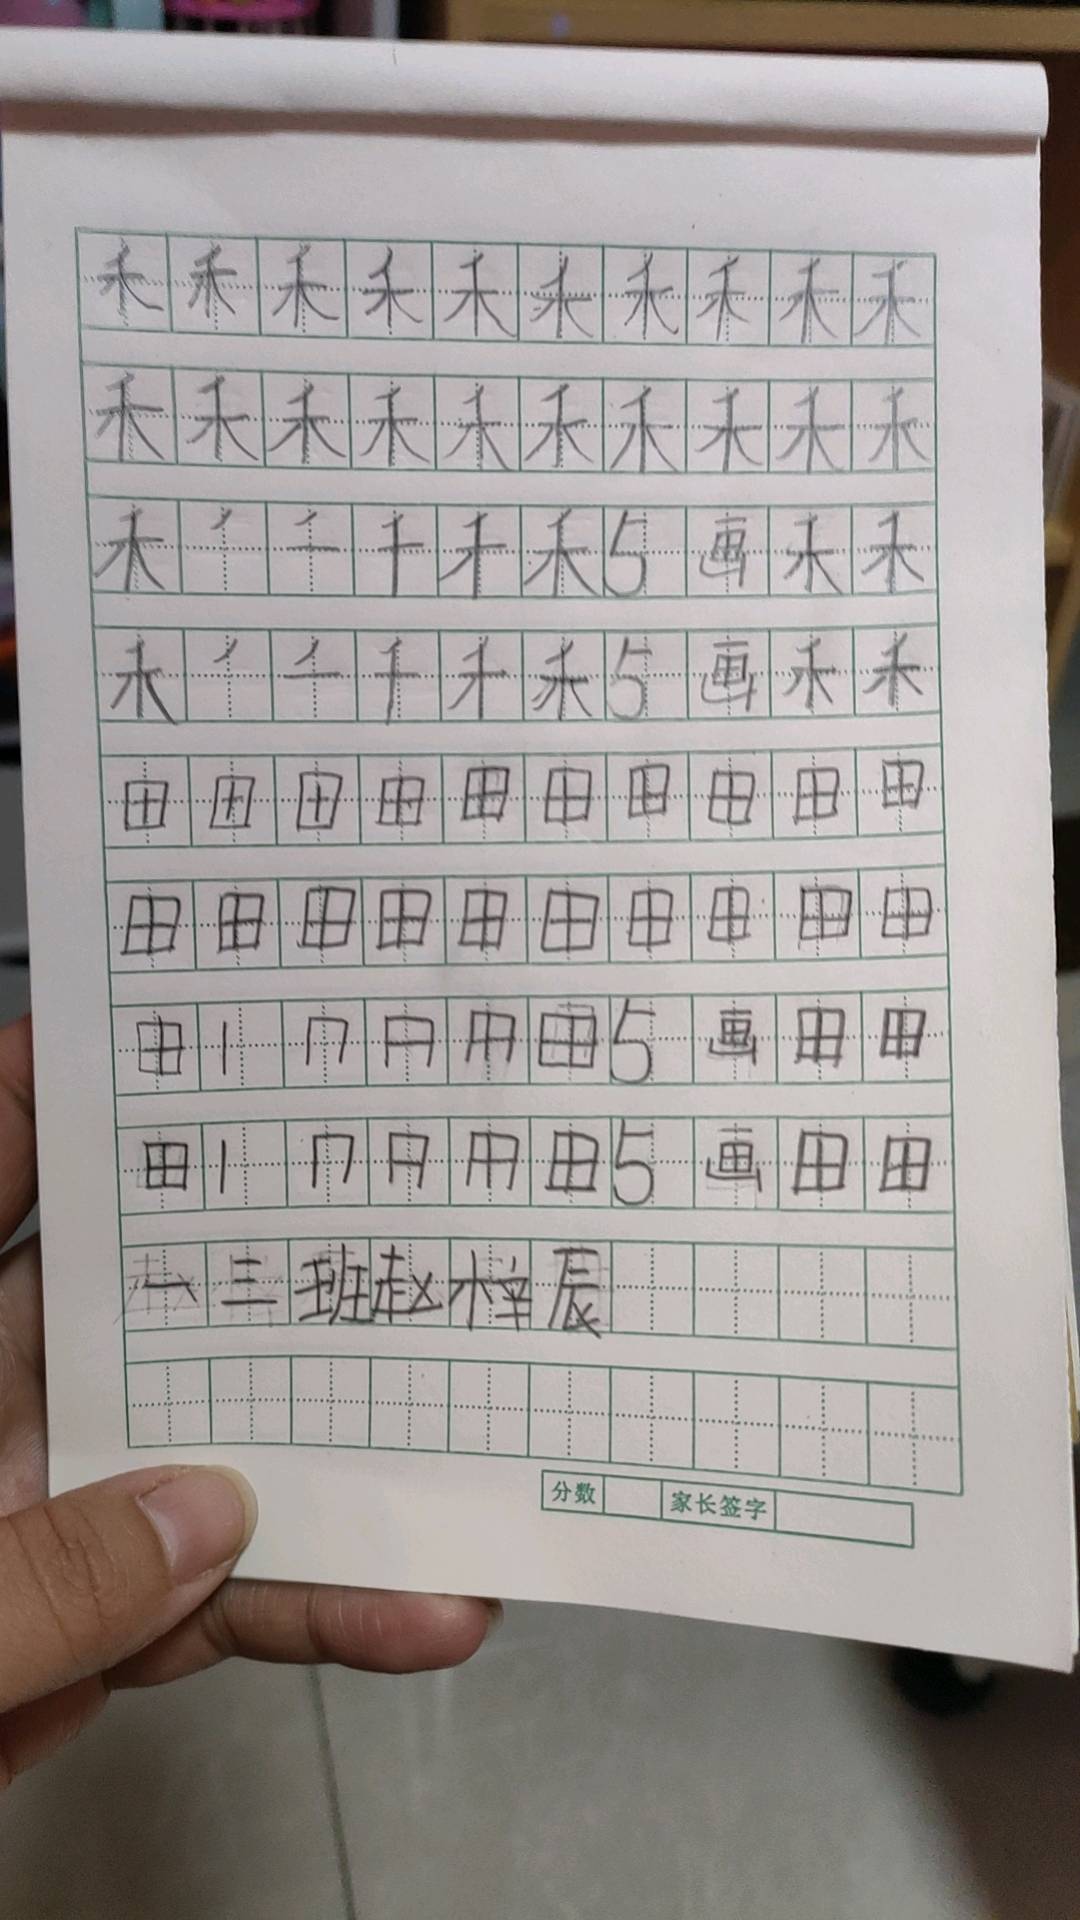 禾禾禾禾禾禾禾禾禾禾
禾禾禾禾禾禾禾禾禾禾
禾丿𠂉千禾5画禾禾
禾丿𠂉千禾5画禾禾
田田田田田田田田田田
田田田田田田田田田田
田丨冂田5画田田
田丨冂田5画田田
一三班赵梓辰
分数 家长签字